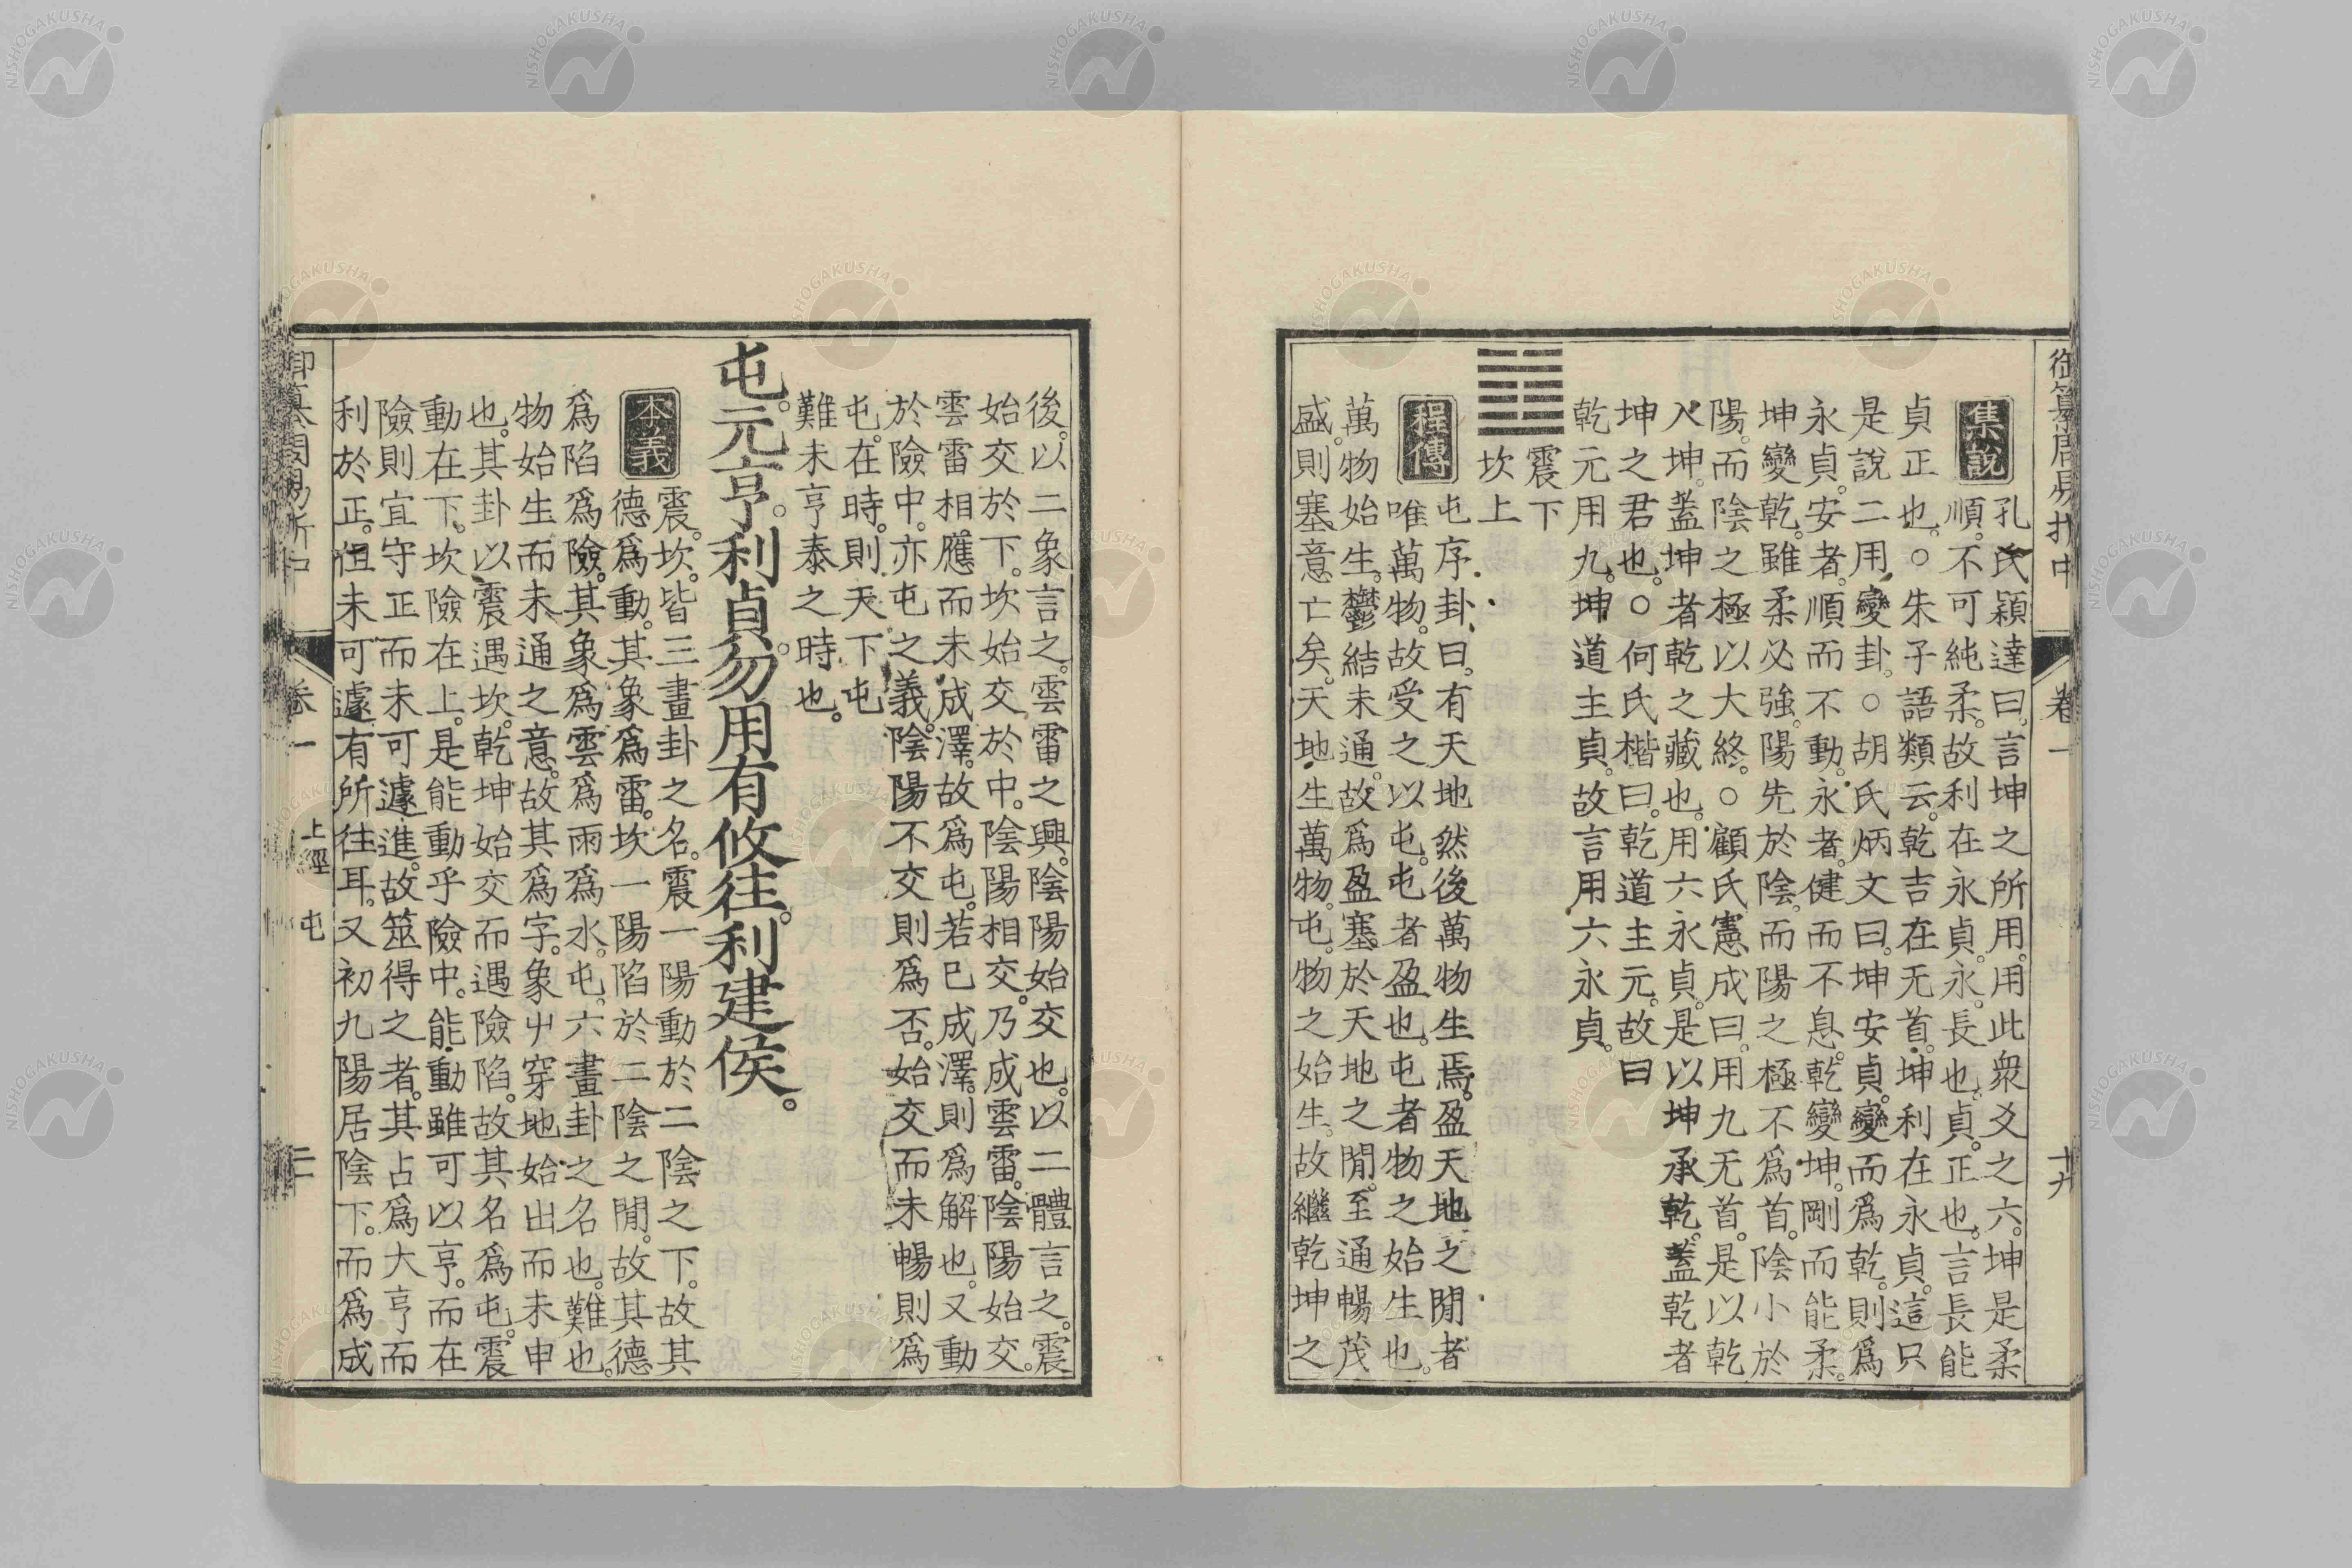 御纂周易折中 卷一 十九
集說
孔氏穎達曰。言坤之所用。用此衆爻之六。坤是柔
順。不可純柔。故利在永貞。永。長也。貞。正也。言長能
貞正也。○朱子語類云。乾吉在无首。坤利在永貞。這只
是說二用變卦。○胡氏炳文曰。坤安貞。變而爲乾。則爲
永貞。安者。順而不動。永者。健而不息。乾變坤。剛而能柔。
坤變乾。雖柔必強。陽先於陰。而陽之極不爲首。陰小於
陽。而陰之極以大終。○顧氏憲成曰。用九无首。是以乾
入坤。蓋坤者乾之藏也。用六永貞。是以坤承乾。蓋乾者
坤之君也。○何氏楷曰。乾道主元。故曰
乾元用九。坤道主貞。故言用六永貞。
震下
坎上
程傳
屯序卦曰。有天地然後萬物生焉。盈天地之閒者
唯萬物。故受之以屯。屯者盈也。屯者物之始生也。
萬物始生。鬱結未通。故爲盈塞於天地之閒。至通暢茂
盛。則塞意亡矣。天地生萬物。屯。物之始生。故繼乾坤之
後。以二象言之。雲雷之興。陰陽始交也。以二體言之。震
始交於下。坎始交於中。陰陽相交。乃成雲雷。陰陽始交。
雲雷相應而未成澤。故爲屯。若已成澤。則爲解也。又動
於險中。亦屯之義。陰陽不交則爲否。始交而未暢則爲
屯。在時。則天下屯
難未亨泰之時也。
屯。元亨。利貞。勿用有攸往。利建侯。
本義
震。坎。皆三畫卦之名。震一陽動於二陰之下。故其
德爲動。其象爲雷。坎一陽陷於二陰之閒。故其德
爲陷爲險。其象爲雲爲雨爲水。屯。六畫卦之名也。難也。
物始生而未通之意。故其爲字。象屮穿地始出而未申
也。其卦以震遇坎。乾坤始交而遇險陷。故其名爲屯。震
動在下。坎險在上。是能動乎險中。能動雖可以亨。而在
險則宜守正而未可遽進。故筮得之者。其占爲大亨而
利於正。但未可遽有所往耳。又初九陽居陰下。而爲成
卷一 上經 屯